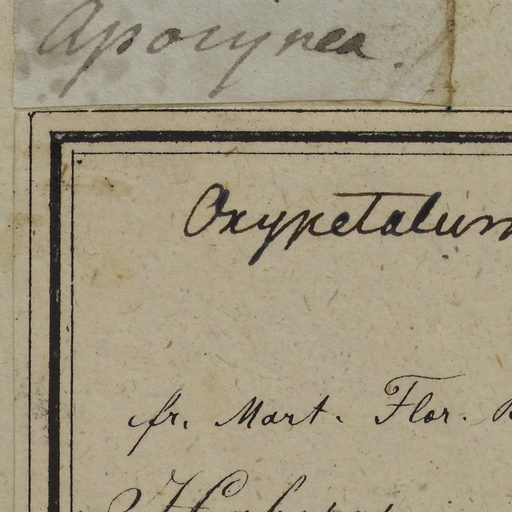 Apocynea.
Oxypetalum
fr. Mart. Flor.